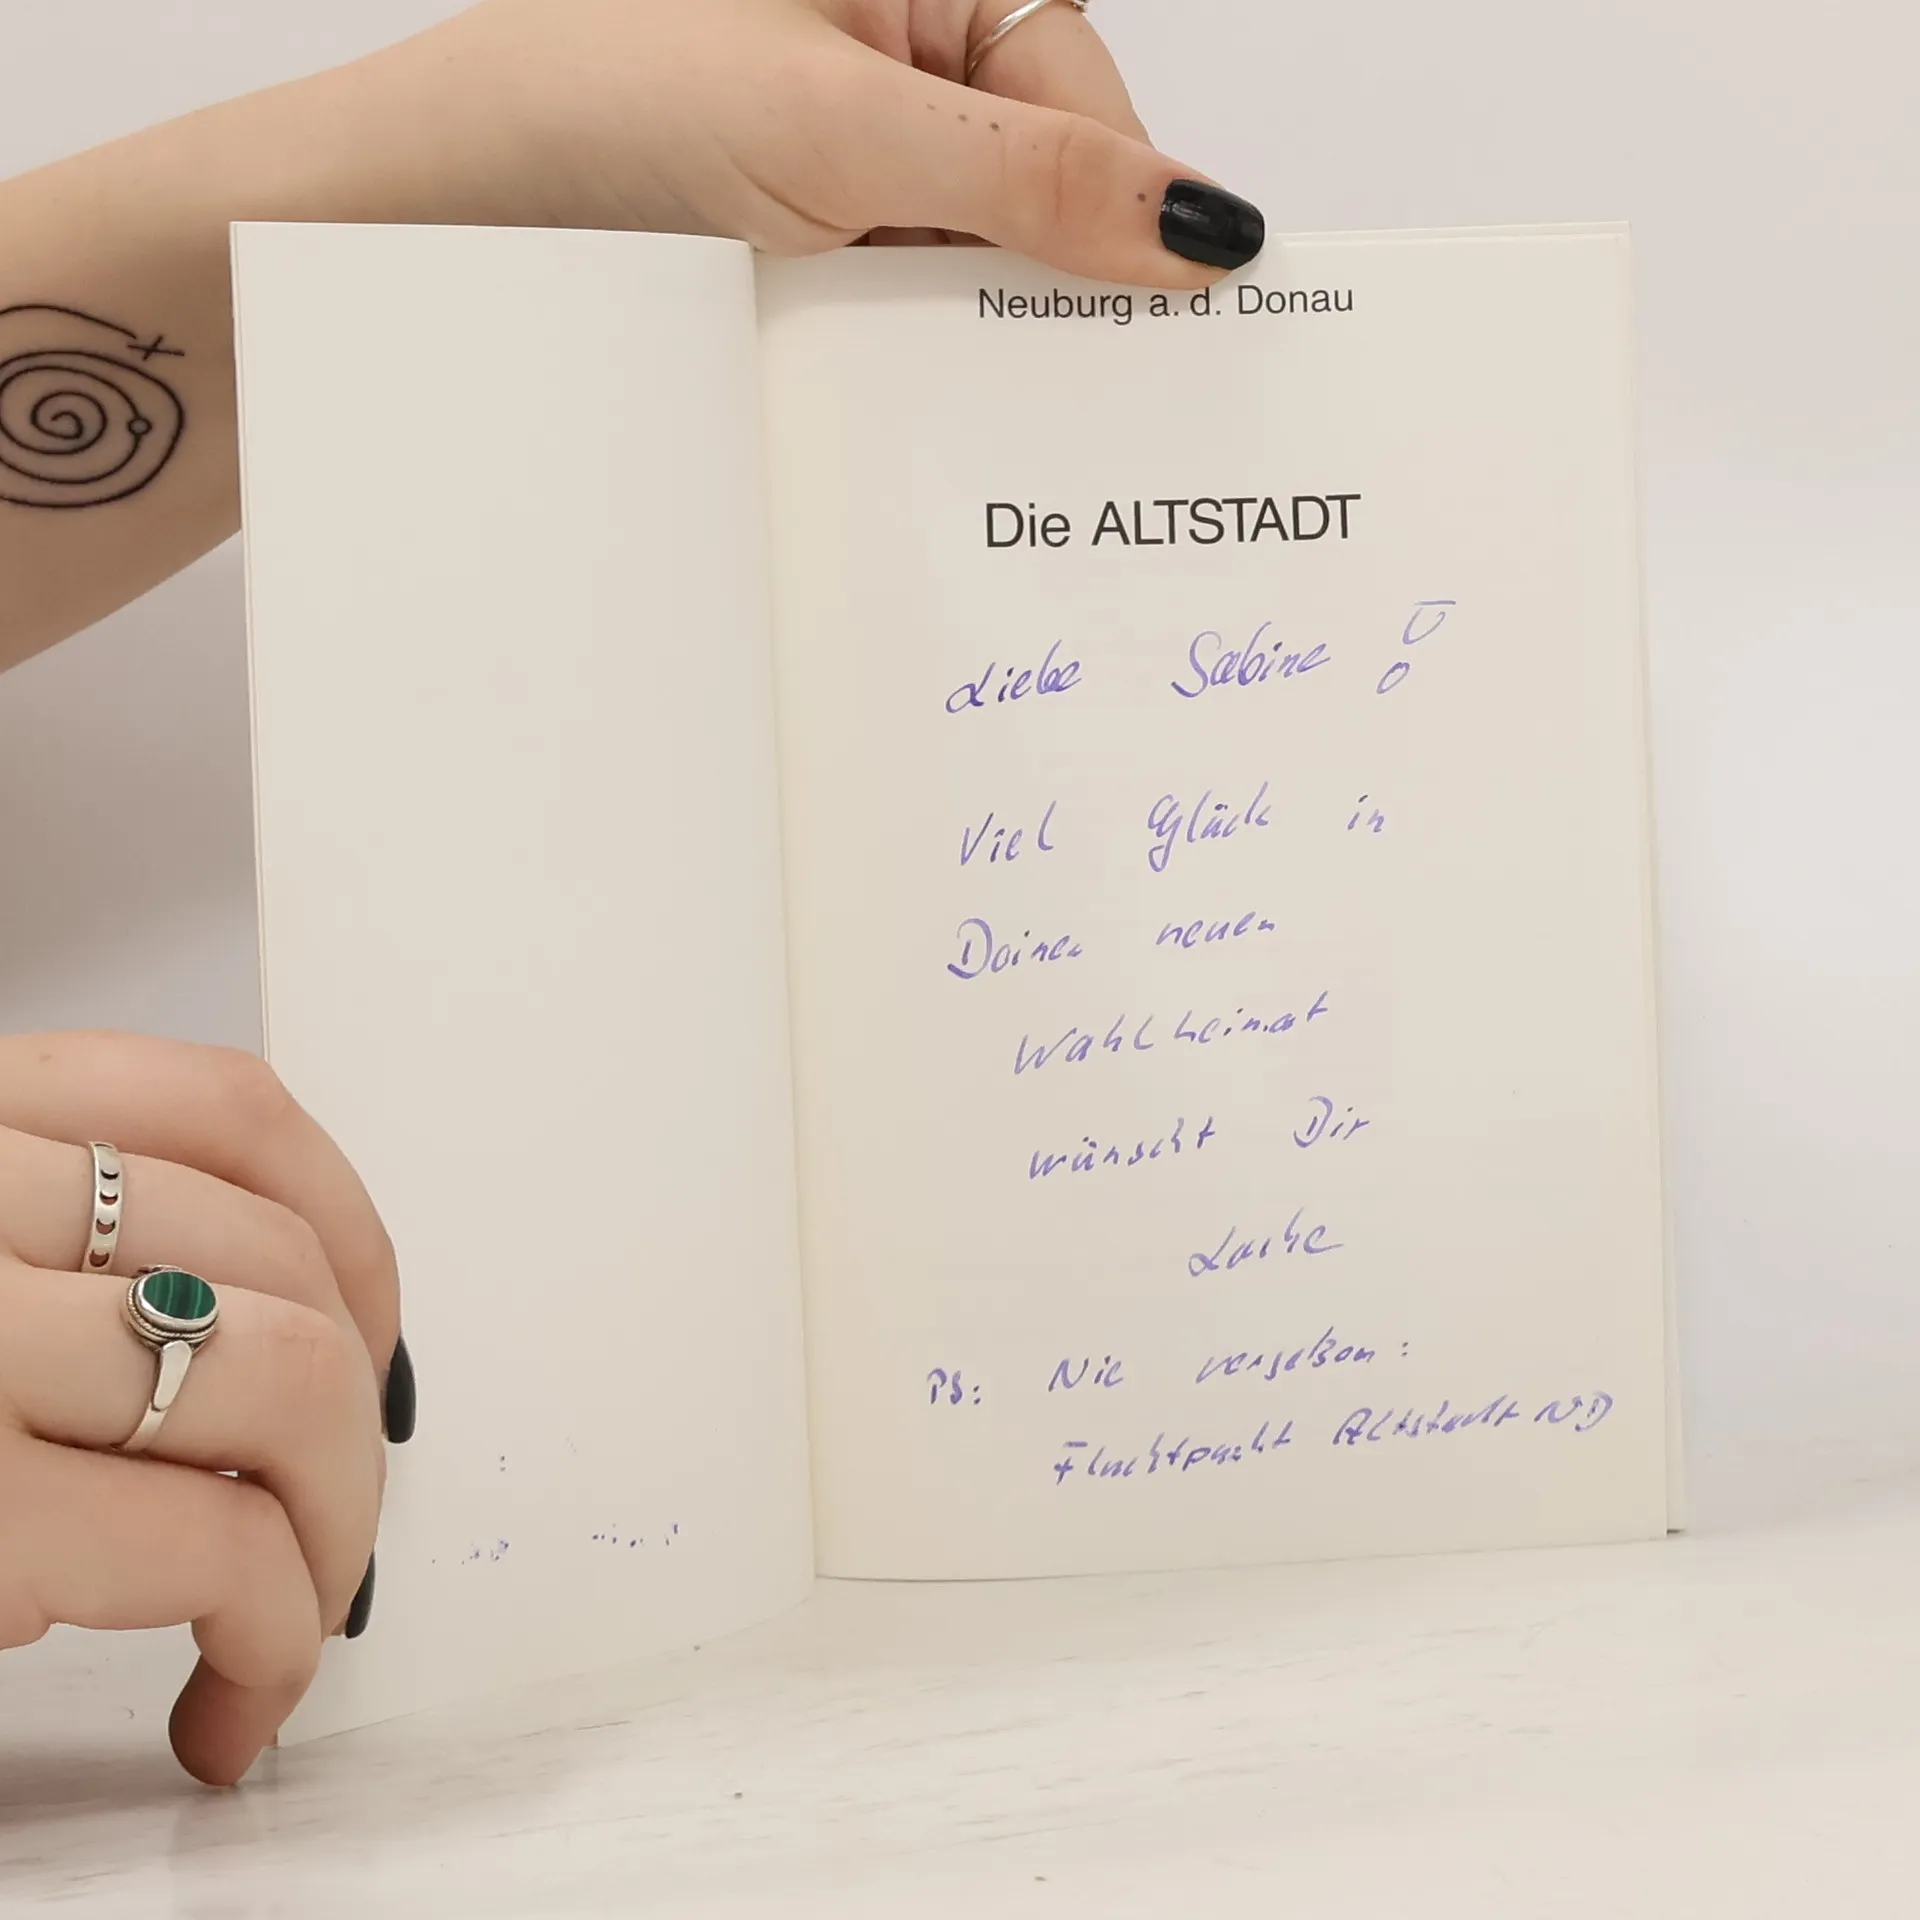 Neuburg a. d. Donau
Die ALTSTADT
Liebe Sabine!
Viel Glück in
Deiner neuen
Wahlheimat
wünscht Dir
PS: Nie vergeßen:
Fluchtpunkt Altstadt ND